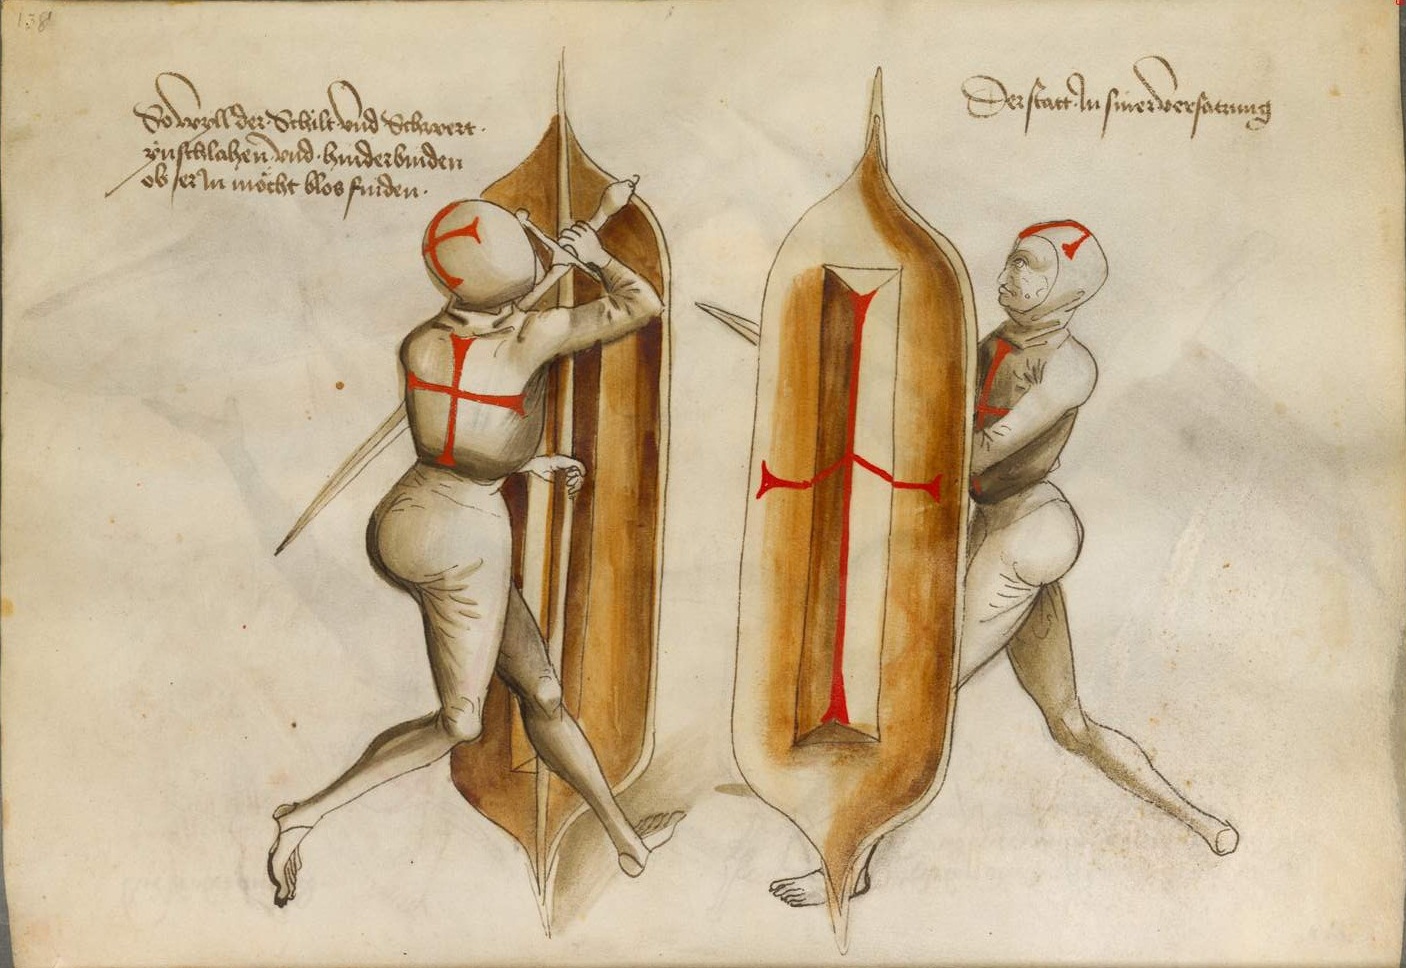 138
So wyll der Schilt vnd Schwert
yn schlahen vnd hinderbinden
ob er In möcht blos finden.
Der statt In siner versatzung